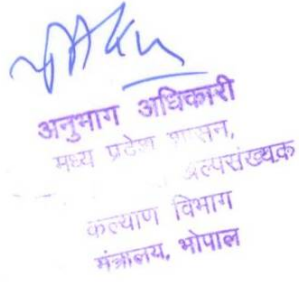 अनुभाग अधिकारी
मध्य प्रदेश शासन,
अल्पसंख्यक
कल्याण विभाग
मंत्रालय, भोपाल